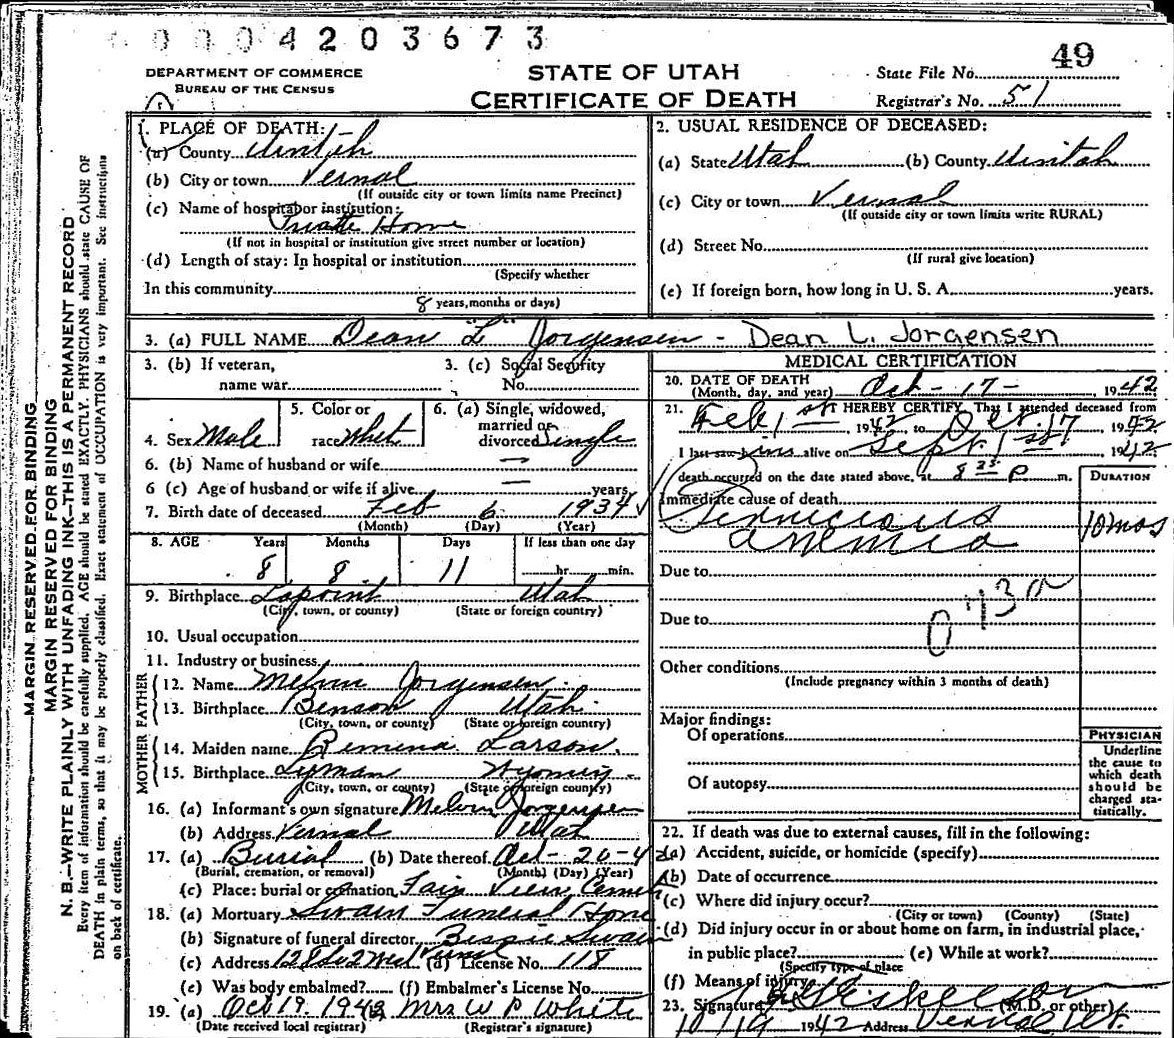 0004203673
49
DEPARTMENT OF COMMERCE
BUREAU OF THE CENSUS
STATE OF UTAH
CERTIFICATE OF DEATH
State File No.
Registrar's No. 51
MARGIN RESERVED FOR BINDING
MARGIN RESERVED FOR BINDING
N. B.—WRITE PLAINLY WITH UNFADING INK—THIS IS A PERMANENT RECORD
Every item of information should be carefully supplied. AGE should be stated EXACTLY. PHYSICIANS should state CAUSE OF
DEATH in plain terms, so that it may be properly classified. Exact statement of OCCUPATION is very important. See instructions
on back of certificate.
1. PLACE OF DEATH:
(a) County Uintah
(b) City or town Vernal
(If outside city or town limits name Precinct)
(c) Name of hospital or institution:
Private Home
(If not in hospital or institution give street number or location)
(d) Length of stay: In hospital or institution
(Specify whether
In this community
8 years, months or days)
2. USUAL RESIDENCE OF DECEASED:
(a) State Utah (b) County Uintah
(c) City or town Vernal
(If outside city or town limits write RURAL)
(d) Street No.
(If rural give location)
(e) If foreign born, how long in U. S. A. years.
3. (a) FULL NAME Dean "L" Jorgensen - Dean L. Jorgensen
3. (b) If veteran,
name war
3. (c) Social Security
No.
4. Sex Male
5. Color or
race Whit
6. (a) Single, widowed,
married or
divorced Single
6. (b) Name of husband or wife —
6 (c) Age of husband or wife if alive — years
7. Birth date of deceased Feb 6 1934
(Month) (Day) (Year)
8. AGE Years Months Days If less than one day
8 8 11 hr. min.
9. Birthplace Lapoint Utah
(City, town, or county) (State or foreign country)
10. Usual occupation
11. Industry or business
FATHER
12. Name Melvin Jorgensen
13. Birthplace Benson Utah
(City, town, or county) (State or foreign country)
MOTHER
14. Maiden name Remina Larson
15. Birthplace Lyman Wyoming
(City, town, or county) (State or foreign country)
16. (a) Informant's own signature Melvin Jorgensen
(b) Address Vernal Utah
17. (a) Burial (b) Date thereof Oct-20-42
(Burial, cremation, or removal) (Month) (Day) (Year)
(c) Place: burial or cremation Fair View Cemet
18. (a) Mortuary Swain Funeral Home
(b) Signature of funeral director Bessie Swain
(c) Address Vernal (d) License No. 118
(e) Was body embalmed? (f) Embalmer's License No.
19. (a) Oct 19. 1942 Mrs W P White
(Date received local registrar) (Registrar's signature)
MEDICAL CERTIFICATION
20. DATE OF DEATH
(Month, day, and year) Oct-17- 1942
21. I HEREBY CERTIFY, That I attended deceased from
Feb 1st 1942 to Oct 17 1942
I last saw him alive on Sept. 1st 1942
death occurred on the date stated above, at 8 35 P m.
DURATION
Immediate cause of death
Pernicious 10 mos
anemia
Due to
Due to
Other conditions
(Include pregnancy within 3 months of death)
Major findings:
Of operations
Of autopsy
PHYSICIAN
Underline
the cause to
which death
should be
charged sta-
tistically.
22. If death was due to external causes, fill in the following:
(a) Accident, suicide, or homicide (specify)
(b) Date of occurrence
(c) Where did injury occur?
(City or town) (County) (State)
(d) Did injury occur in or about home on farm, in industrial place,
in public place? (e) While at work?
(Specify type of place
(f) Means of injury
23. Signature (M.D. or other)
10/19 1942 Address Vernal Ut.